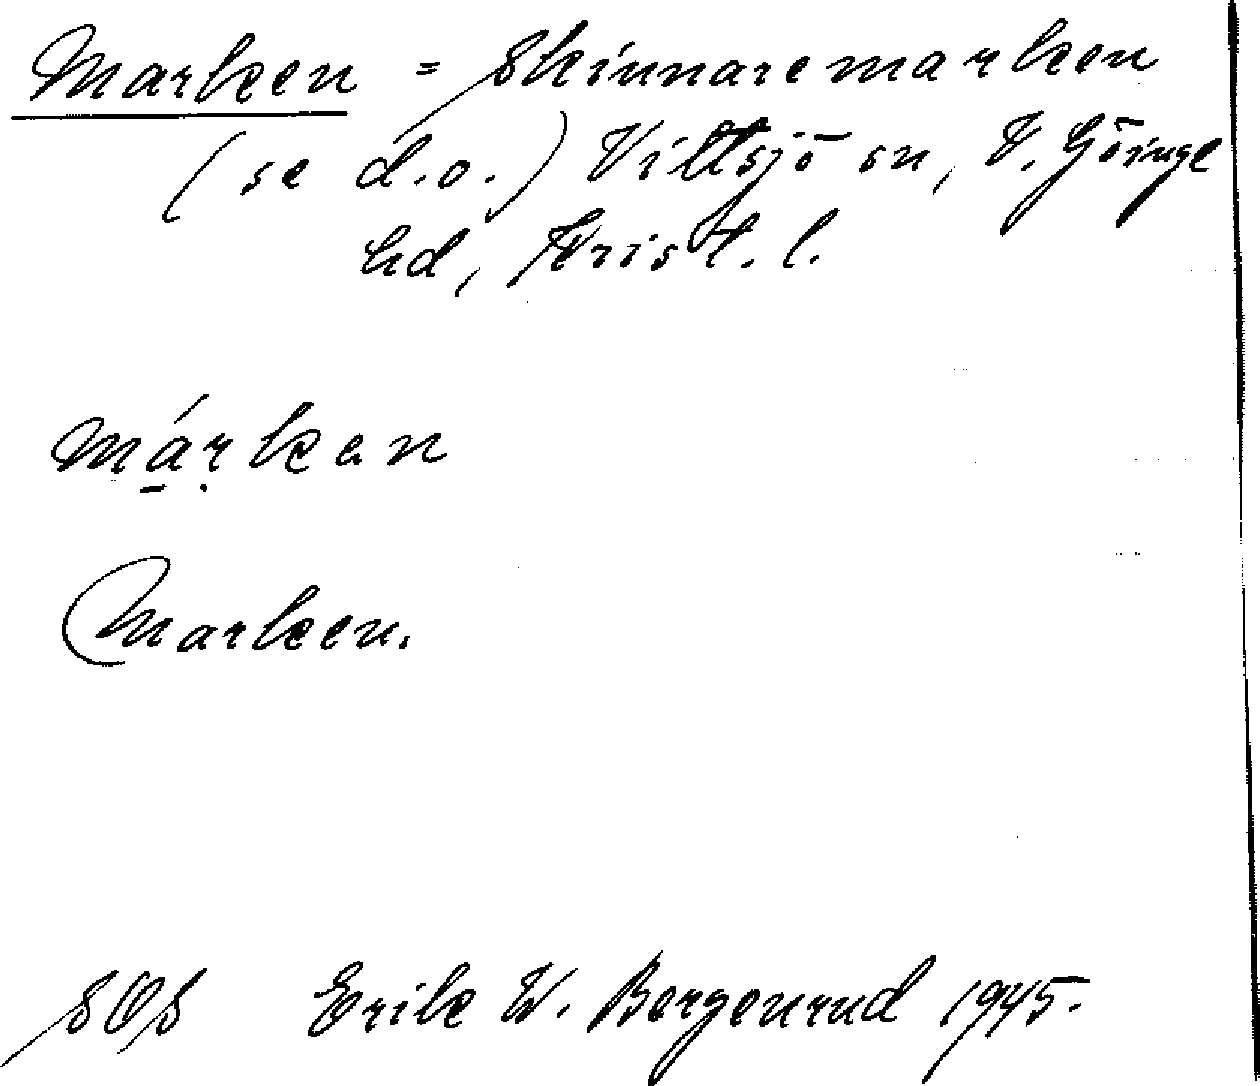 Marken = Skinnaremarken
(se d.o.) Vittsjö sn, V. Göinge
hd, Krist. l.
márken
Marken.
SOS Erik W. Bergenrud 1945.